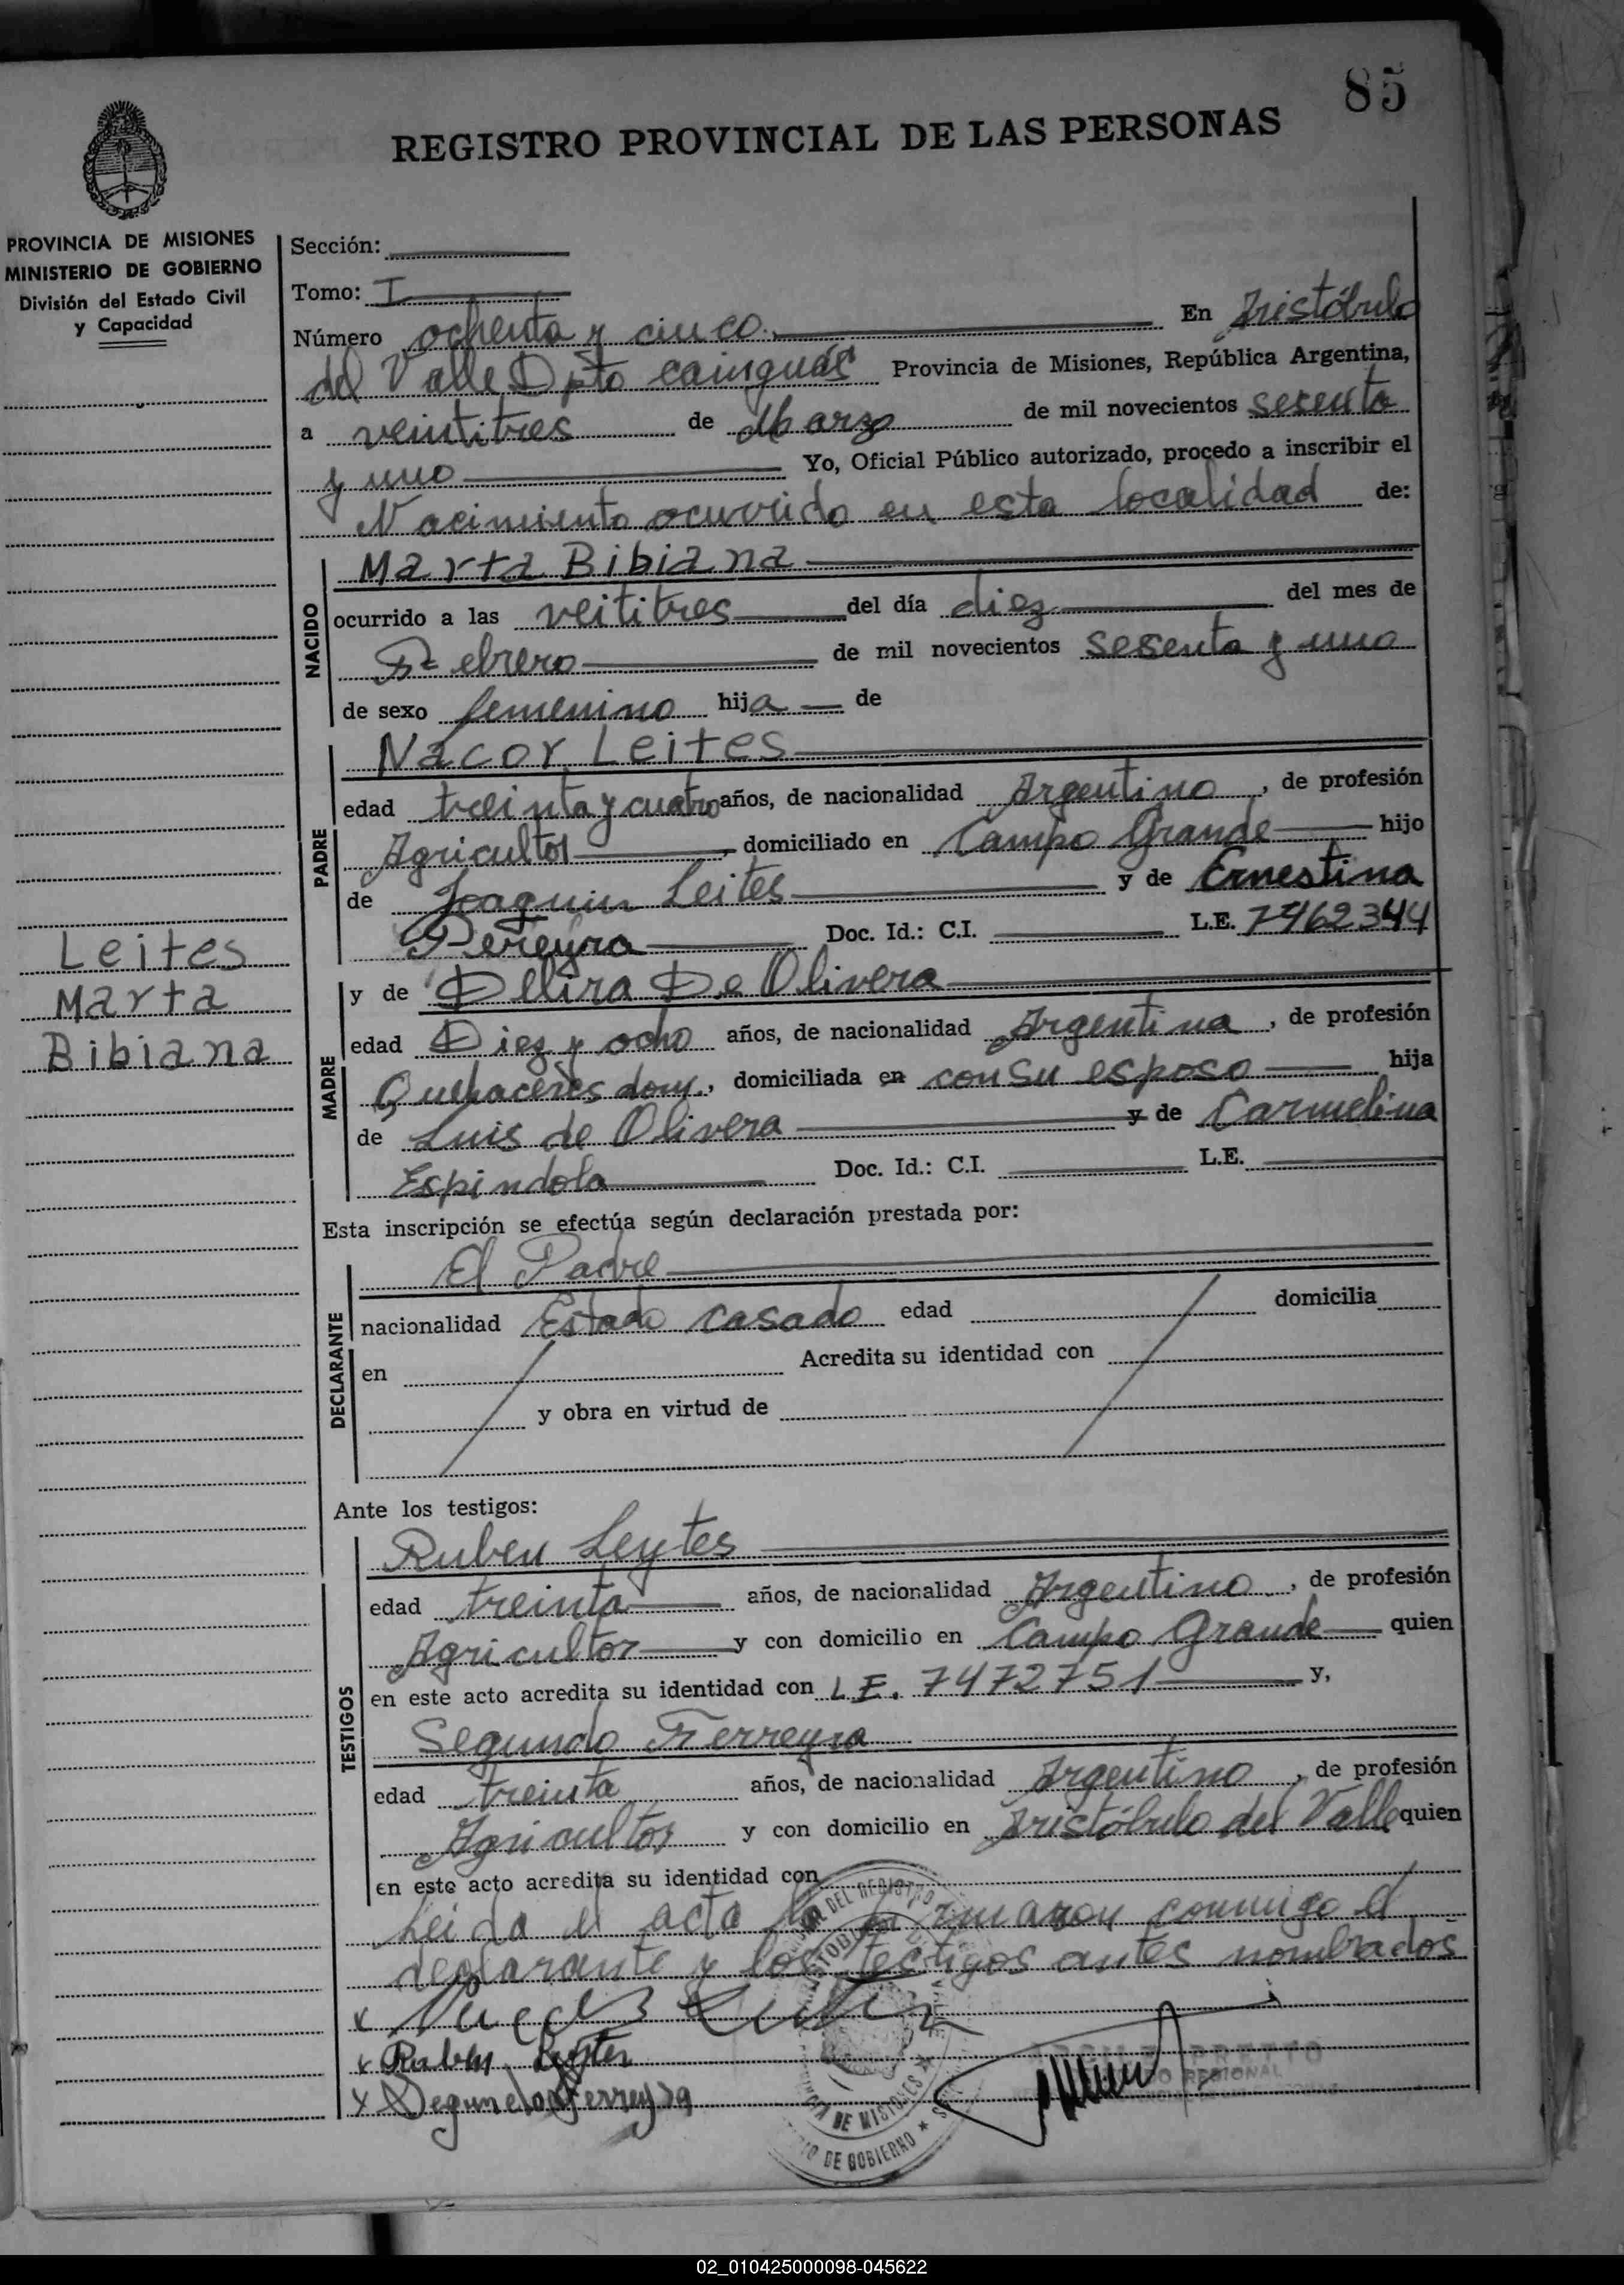 85
REGISTRO PROVINCIAL DE LAS PERSONAS
PROVINCIA DE MISIONES
MINISTERIO DE GOBIERNO
División del Estado Civil
y Capacidad
Sección:
Tomo: I
Número ochenta y cinco. En Aristóbulo
del Valle Dpto cainguás Provincia de Misiones, República Argentina,
a veintitres de Marzo de mil novecientos sesenta
y uno Yo, Oficial Público autorizado, procedo a inscribir el
Nacimiento ocurrido en esta localidad de:
NACIDO
Marta Bibiana
ocurrido a las veititres del día diez del mes de
Febrero de mil novecientos sesenta y uno
de sexo femenino hija de
PADRE
Nacor Leites
edad treinta y cuatro años, de nacionalidad Argentino, de profesión
Agricultor, domiciliado en Campo Grande hijo
de Joaquin Leites y de Ernestina
Pereyra Doc. Id.: C.I. L.E. 7462344
Leites
Marta
Bibiana
MADRE
y de Delira De Olivera
edad Diez y ocho años, de nacionalidad Argentina, de profesión
Quehaceres dom., domiciliada en con su esposo hija
de Luis de Olivera y de Carmelina
Espindola Doc. Id.: C.I. L.E.
Esta inscripción se efectúa según declaración prestada por:
DECLARANTE
El Padre
nacionalidad Estado casado edad domicilia
en Acredita su identidad con
y obra en virtud de
Ante los testigos:
TESTIGOS
Ruben Leytes
edad treinta años, de nacionalidad Argentino, de profesión
Agricultor y con domicilio en Campo Grande quien
en este acto acredita su identidad con L E. 7472751 y,
Segundo Ferreyra
edad treinta años, de nacionalidad Argentino, de profesión
Agricultor y con domicilio en Aristóbulo del Valle quien
en este acto acredita su identidad con
Leida el acta la firmaron conmigo el
declarante y los testigos antes nombrados
x
x Ruben Leytes
x Segundo Ferreyra
DEL REGISTRO
DE MISIONES
DE GOBIERNO
REGIONAL
02_010425000098-045622